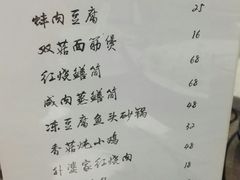 蚌肉豆腐 25
双菇面筋煲 16
红烧鳝筒 68
咸肉蒸鳝筒 68
冻豆腐鱼头砂锅 32
香菇炖小鸡 48
外婆家红烧肉 48
18